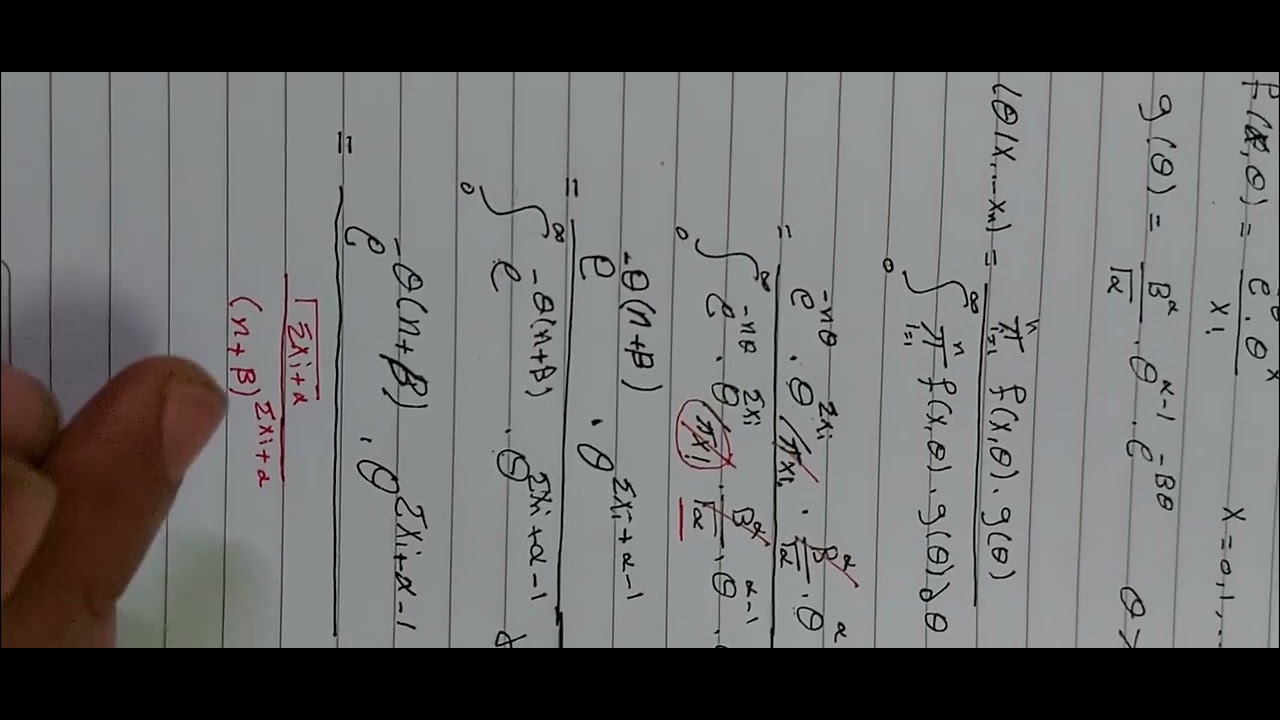 f(x,θ) = e^-θ . θ^x / x! x = 0,1,...
g(θ) = β^α / Γα . θ^α-1 . e^-βθ θ >
(θ|x,...xn) = π^n_i=1 f(x,θ) . g(θ)
∫_0^∞ π^n_i=1 f(x,θ) . g(θ) ∂θ
= e^-nθ . θ^Σxi / πxi . β^α / Γα . θ^α
∫_0^∞ e^-nθ . θ^Σxi / πx! . β^α / Γα . θ^α-1 .
= e^-θ(n+β) . θ^Σxi+α-1
∫_0^∞ e^-θ(n+β) . θ^Σxi+α-1
= e^-θ(n+β) . θ^Σxi+α-1
Γ Σxi+α
(n+β)^Σxi+α